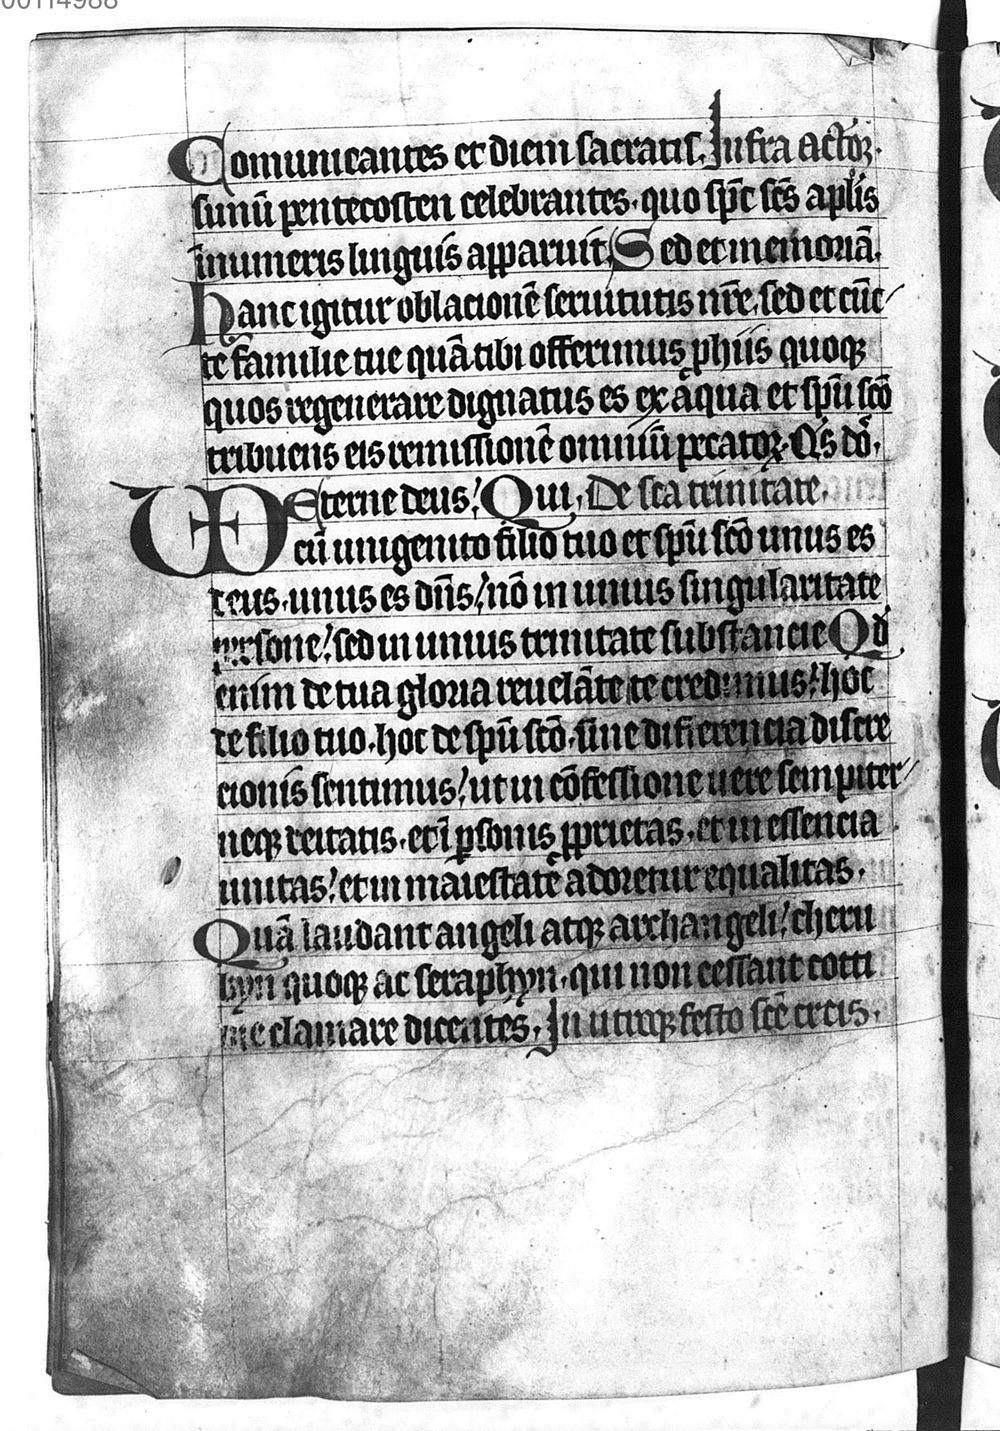 00114988
Comunicantes et diem sacratis. Infra actoꝝ.
simū pentecosten celebrantes. quo sp̄c sc̄s apl̄is
īnumeris linguis apparuit. Sed et memoriā.
Hanc igitur oblacionē seruitutis nr̄e. sed et cūc
te familie tue quā tibi offerimus ꝓ hiis quoqꝫ
quos regenerare dignatus es ex aqua et sp̄u sc̄o
tribuens eis remissionē omniū peccatoꝝ. Qs dō.
Eterne deus. Qui. De sc̄a trinitate.
cū unigenito filio tuo et sp̄u sc̄o unus es
deus. unus es dn̄s. nō in unius singularitate
persone. sed in unius trinitate substancie Qd̄
enim de tua gloria reuelāte te credimus. hoc
de filio tuo. hoc de sp̄u sc̄o. sine differencia discre
cionis sentimus. ut in cōfessione uere sempiter
neqꝫ deitatis. et ī ꝑsonis ꝓprietas. et in essencia
unitas. et in maiestate adoretur equalitas.
Quā laudant angeli atqꝫ archangeli. cheru
byn quoqꝫ ac seraphyn. qui non cessant cotti
me clamare dicentes. In utroqꝫ festo sc̄e crcis.